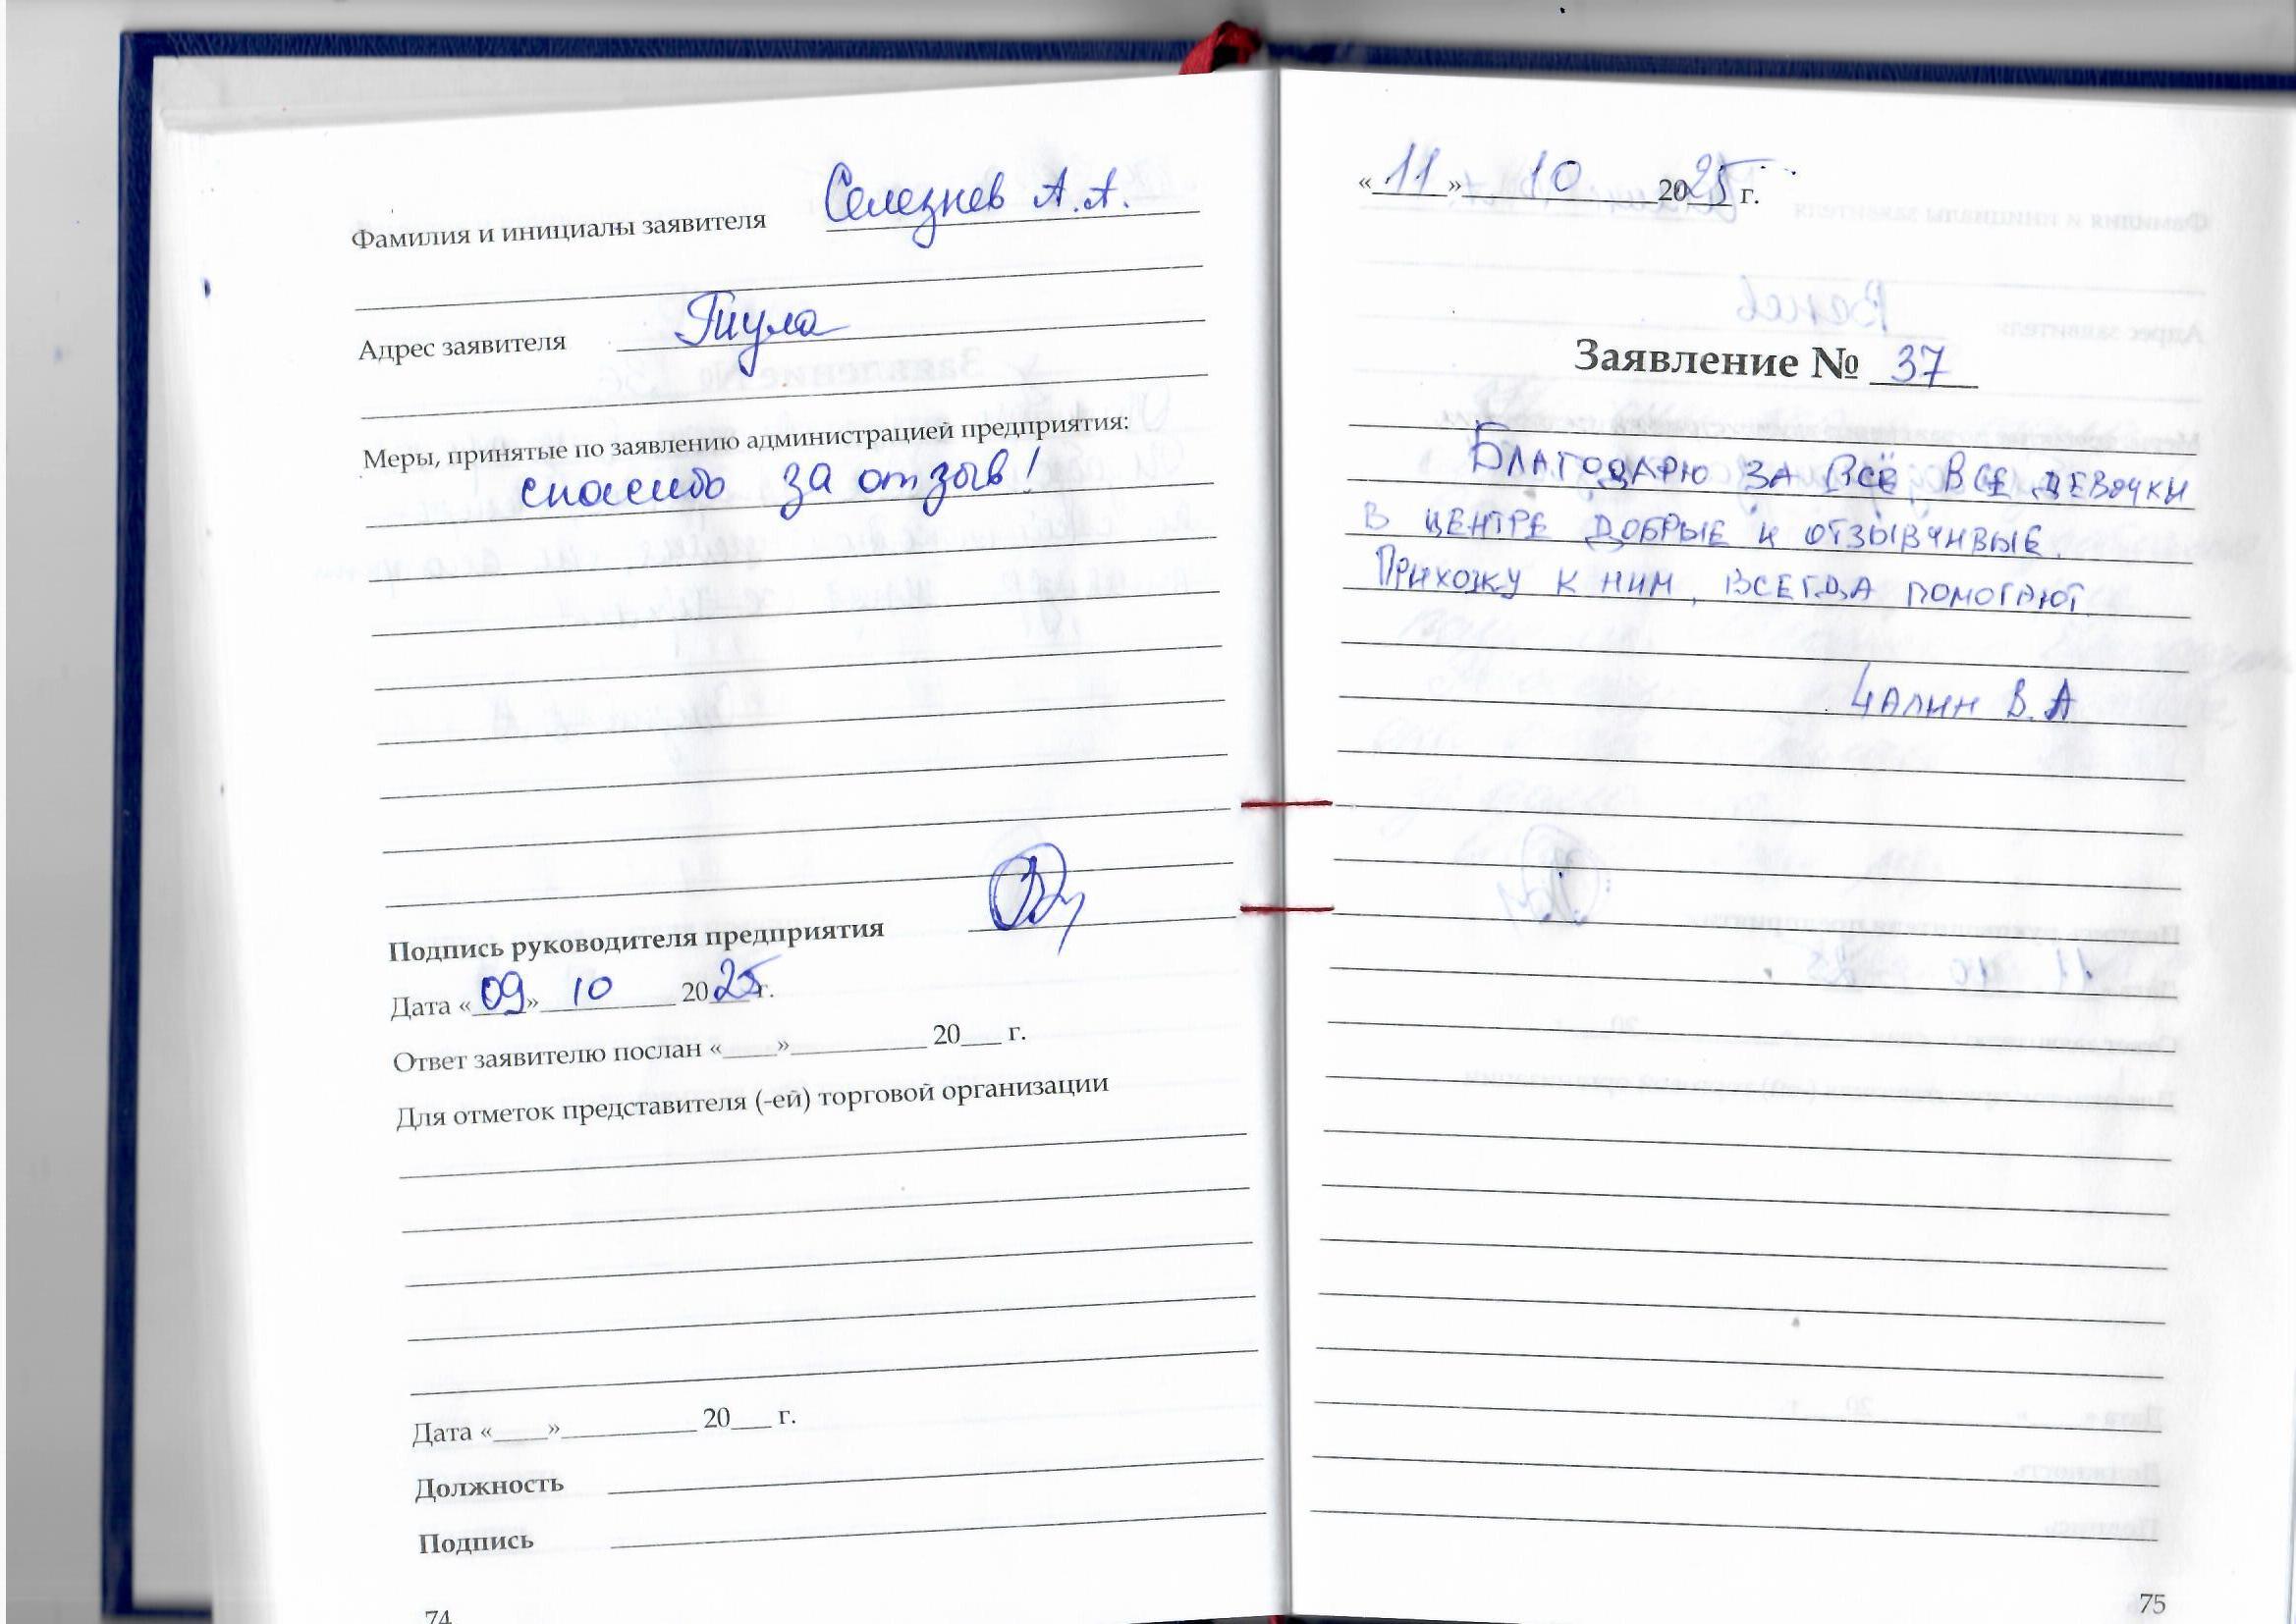 Фамилия и инициалы заявителя Селезнев А.А.
Адрес заявителя Тула
Меры, принятые по заявлению администрацией предприятия:
спасибо за отзыв!
Подпись руководителя предприятия
Дата «09» 10 2025 г.
Ответ заявителю послан «____»__________ 20___ г.
Для отметок представителя (-ей) торговой организации
Дата «____»__________ 20___ г.
Должность
Подпись
74
«11» 10 2025 г.
Заявление № 37
Благодарю за всё все девочки
в центре добрые и отзывчивые.
Прихожу к ним, всегда помогают.
Чалин В.А
75